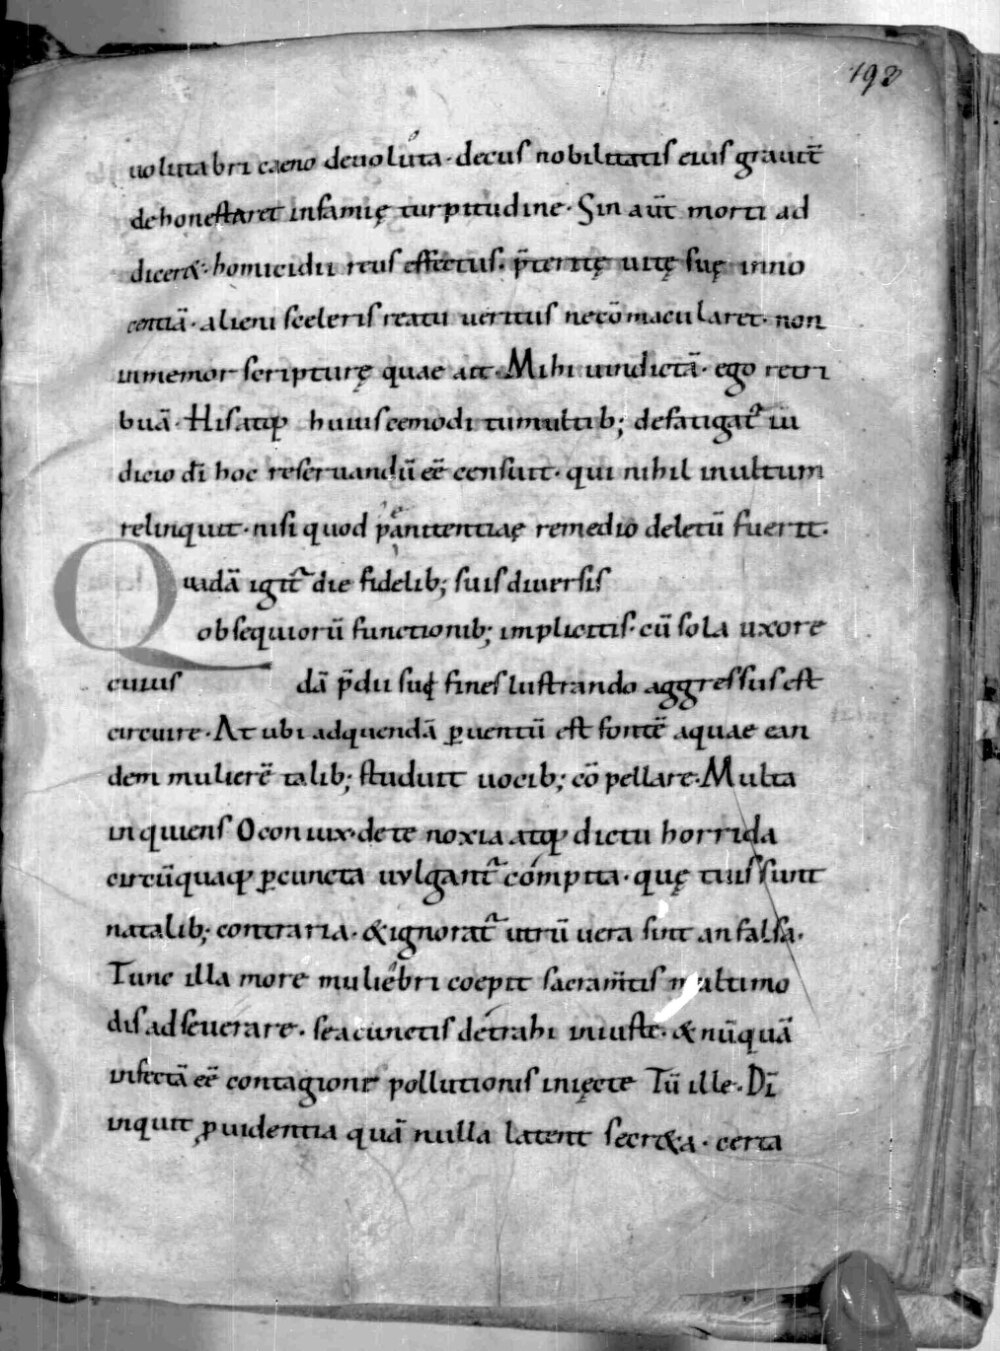 192
uoluta bri caeno deuoluta · decus nobilitatis eius grauit̄
dehonestaret infamię turpitudine · Sin aūt morti ad
dicer& · homicidii reus effectus · p̄teritę uitę suę inno
centiā · alieni sceleris reatu ueritus ne cōmacularet · non
inmemor scripturę quae ait · Mihi uindictā · ego retri
buā · His atq; huiuscemodi tumultib; defatigat᷑ iu
dicio dī hoc reseruandū eē censuit · qui nihil inultum
relinquit · nisi quod paenitentiae remedio deletū fuerit ·
Quidā igit᷑ die fidelib; suis diuersis
obsequiorū functionib; implicitis · cū sola uxore
cuius dā p̄dii sui fines lustrando aggressus est
circuire · At ubi ad quendā ꝑuentū est fontē aquae ean
dem mulierē talib; studuit uocib; cōpellare · Multa
inquiens O coniux · de te noxia atq; dictu horrida
circūquaq; ꝑcuncta uulgant᷑ cómpita · quę tuis sunt
natalib; contraria · & ignorat᷑ utrū uera sint an falsa ·
Tunc illa more muliebri coepit sacram̄tis multimo
dis adseuerare · se a cunctis detrahi iniuste · & nūquā
infectā eē contagione pollutionis iniecte Tū ille · Dī
inquit ꝓuidentia quā nulla latent secr&a · certa